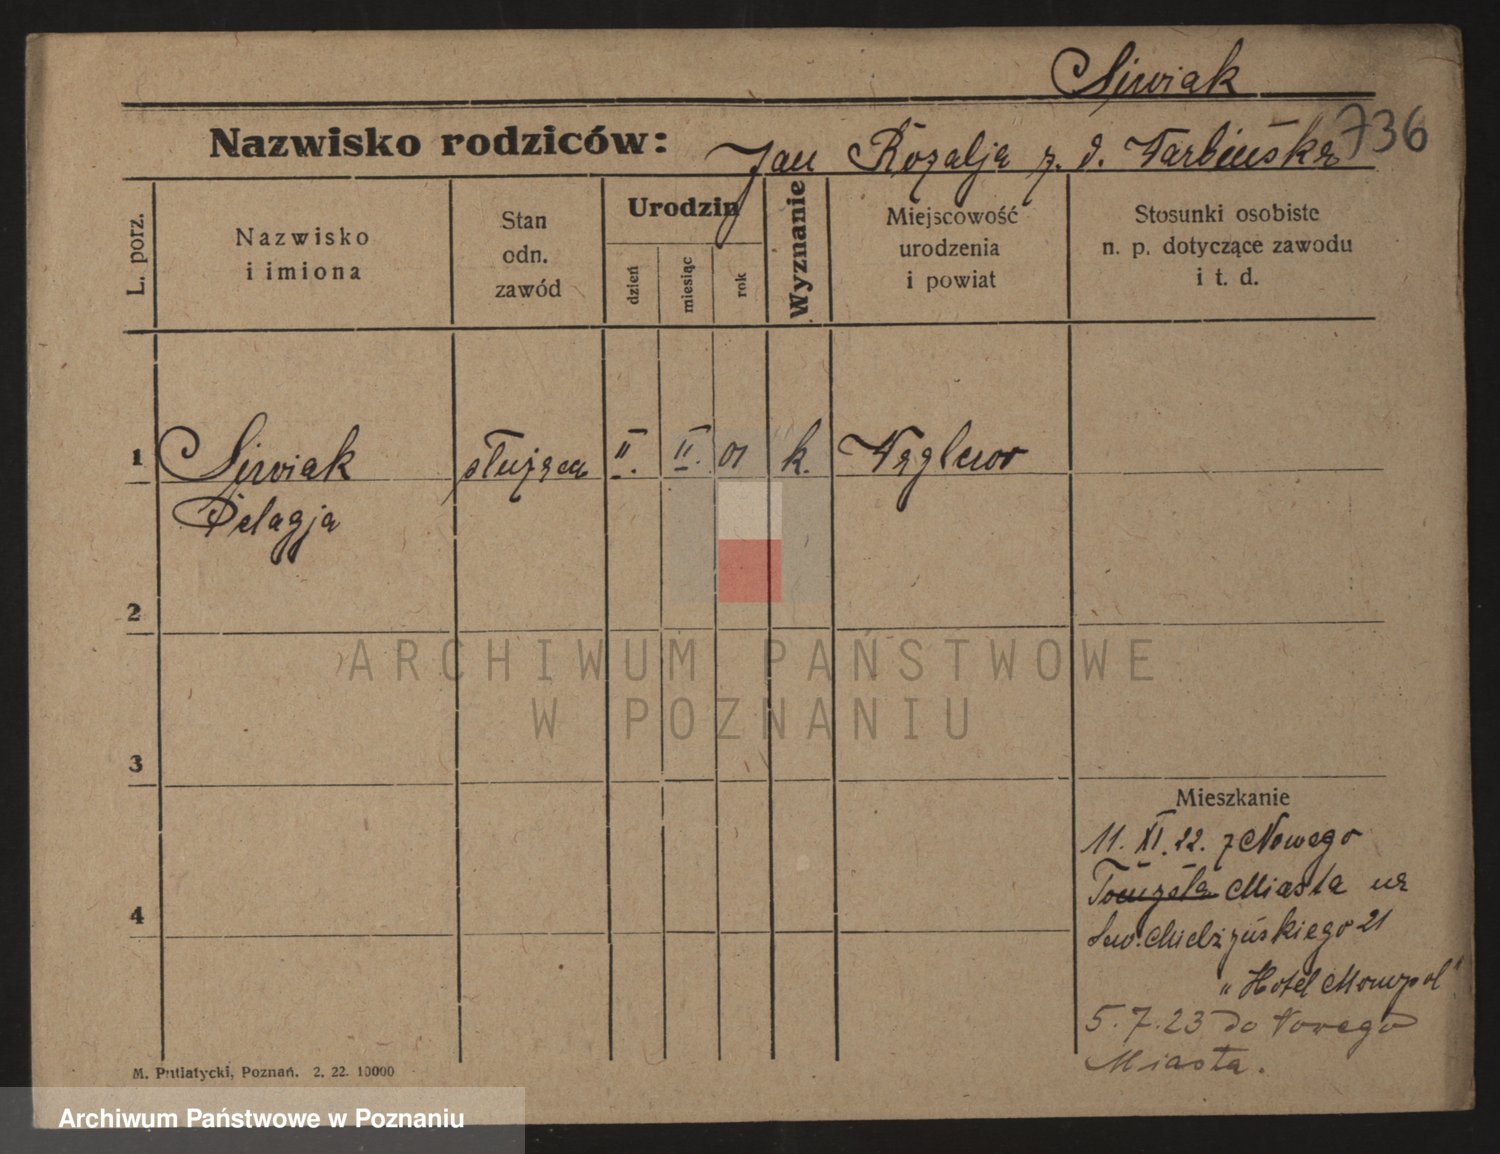 Siwiak
736
Nazwisko rodziców: Jan Rozalja z. d.
L. porz.
Nazwisko
i imiona
Stan
odn.
zawód
Urodzin
dzień
miesiąc
rok
Wyznanie
Miejscowość
urodzenia
i powiat
Stosunki osobiste
n. p. dotyczące zawodu
i t. d.
1 Siwiak służąca II. II. 01 k. Węglewo
Pelagja
2
ARCHIWUM PAŃSTWOWE
W POZNANIU
3
Mieszkanie
11. XI. 22. z Nowego
Miasta na
21
4
„Hotel Monopol"
5. 7. 23 do Nowego
Miasta.
M. Putiatycki, Poznań. 2. 22. 10000
Archiwum Państwowe w Poznaniu